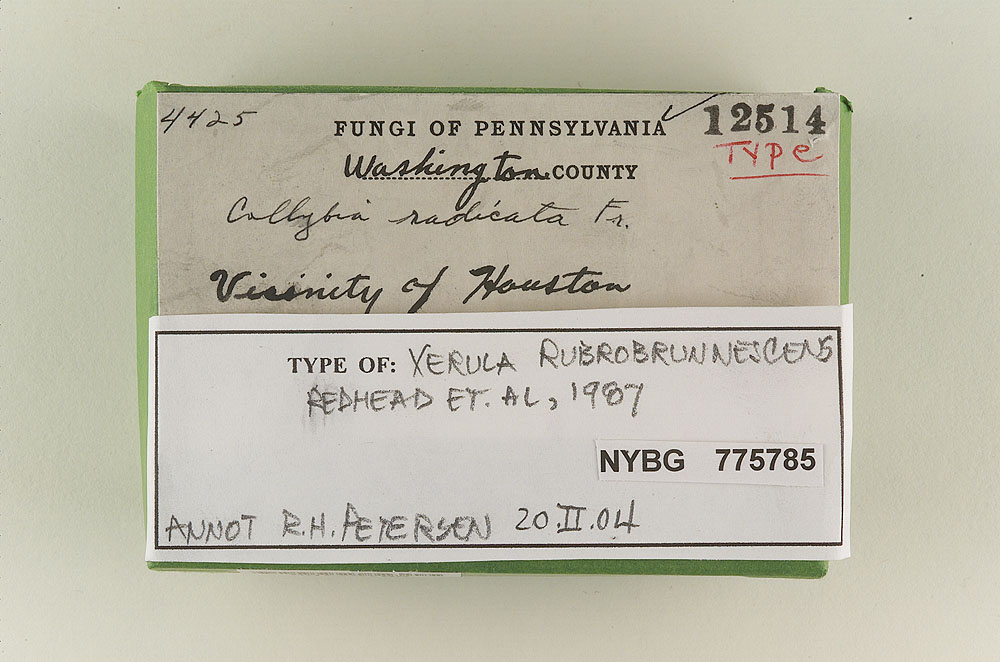 4425
FUNGI OF PENNSYLVANIA ✓ 12514
TYPE
Washington COUNTY
Collybia radicata Fr.
Vicinity of Houston
TYPE OF: XERULA RUBROBRUNNESCENS
REDHEAD ET. AL, 1987
NYBG 775785
ANNOT R.H. PETERSEN 20.II.04